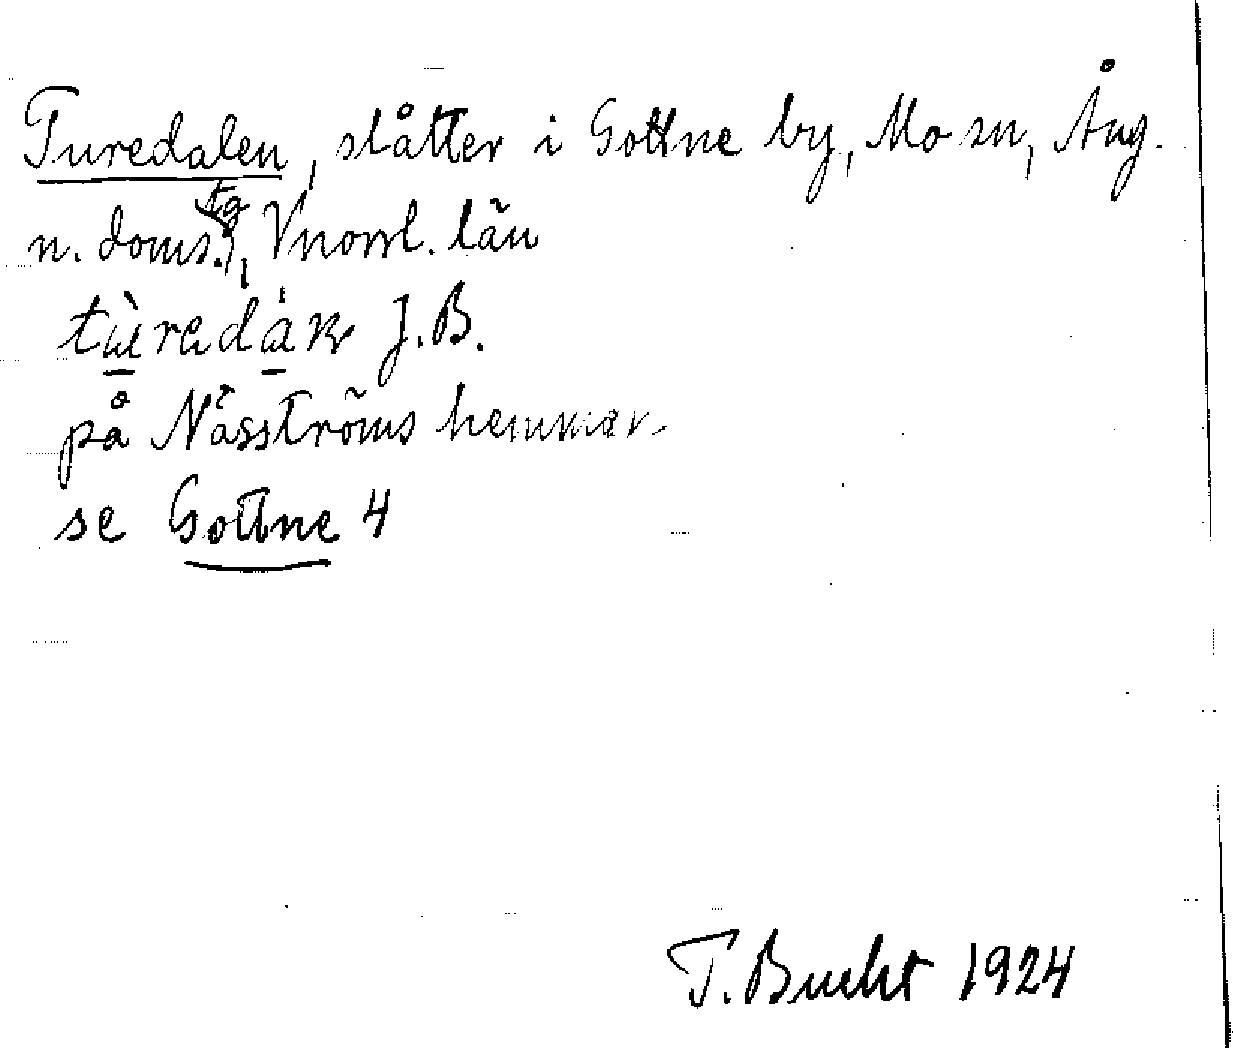 Turedalen, slåtter i Gottne by, Mo sn, Ång.
n. doms.tg, Vnorrl. län
J.B.
på Näsströms hemman
se Gottne 4
T. Bucht 1924